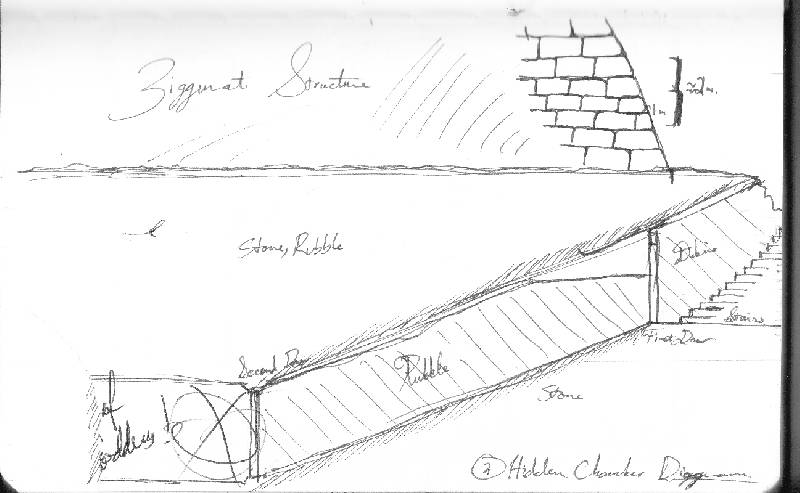 Ziggurat Structure
≈2m.
1m
Stone, Rubble
Debris
Stairs
First Door
Second Door
Rubble
Stone
of
goddess!
② Hidden Chamber Diggram